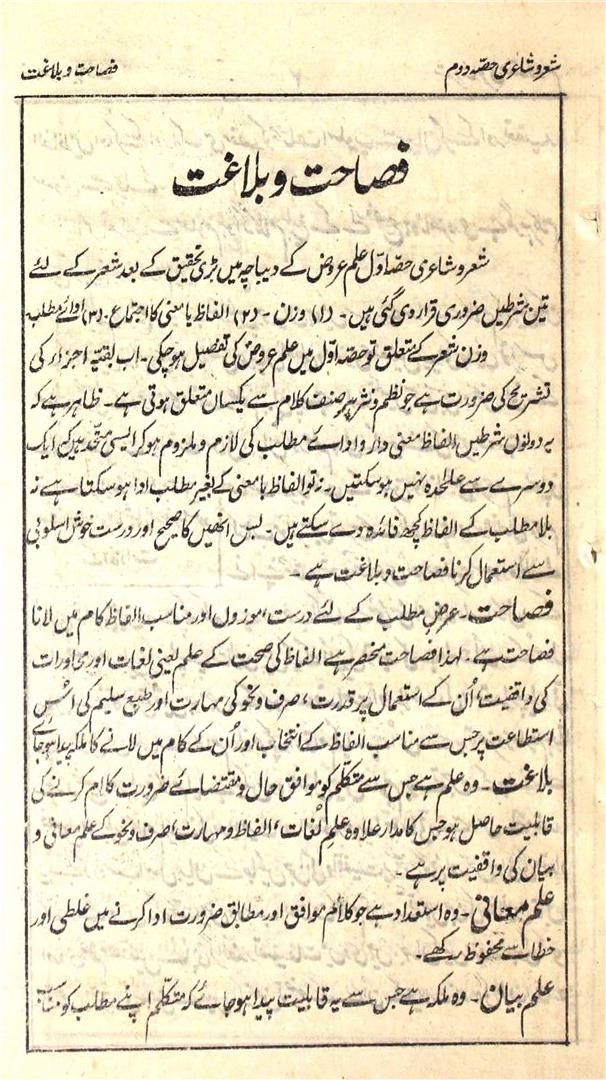 شعر و شاعری حصّہ دوم
فصاحت و بلاغت
فصاحت و بلاغت
شعر و شاعری حصّہ اوّل علم عروض کے دیباچہ میں بڑی تحقیق کے بعد شعر کے لئے
تین شرطیں ضروری قرار دی گئی ہیں۔ (۱) وزن۔ (۲) الفاظ با معنی کا اجتماع۔ (۳) ادائے مطلب
وزن شعر کے متعلق تو حصّہ اوّل میں علم عروض کی تفصیل ہو چکی۔ اب بقیہ اجزاء کی
تشریح کی ضرورت ہے جو نظم و نثر ہر صنف کلام سے یکساں متعلق ہوتی ہے۔ ظاہر ہے کہ
یہ دونوں شرطیں الفاظ معنی دار و ادائے مطلب کی لازم و ملزوم ہو کر ایسی متّحد ہیں کہ ایک
دوسرے سے علٰحدہ نہیں ہو سکتیں۔ نہ تو الفاظ با معنی کے بغیر مطلب ادا ہو سکتا ہے نہ
بلا مطلب کے الفاظ کچھ فائدہ دے سکتے ہیں۔ بس انھیں کا صحیح اور درست خوش اسلوبی
سے استعمال کرنا فصاحت و بلاغت ہے۔
فصاحت۔ عرض مطلب کے لئے درست، موزوں اور مناسب الفاظ کام میں لانا
فصاحت ہے۔ لہذا فصاحت منحصر ہے الفاظ کی صحت کے علم یعنی لغات اور محاورات
کی واقفیت، اُن کے استعمال پر قدرت، صرف و نحو کی مہارت اور طبع سلیم کی اُس
استطاعت پر جس سے مناسب الفاظ کے انتخاب اور اُن کے کام میں لانے کا ملکہ پیدا ہو جائے
بلاغت۔ وہ علم ہے جس سے متکلّم کو موافق حال و مقتضائے ضرورت کلام کرنے کی
قابلیت حاصل ہو جس کا مدار علاوہ علم لُغات، الفاظ و مہارت، صرف و نحو کے علم معانی و
بیان کی واقفیت پر ہے۔
علم معانی۔ وہ استعداد ہے جو کلام موافق اور مطابق ضرورت ادا کرنے میں غلطی اور
خطا سے محفوظ رکھے۔
علم بیان۔ وہ ملکہ ہے جس سے یہ قابلیت پیدا ہو جائے کہ متکلّم اپنے مطلب کو مناسب